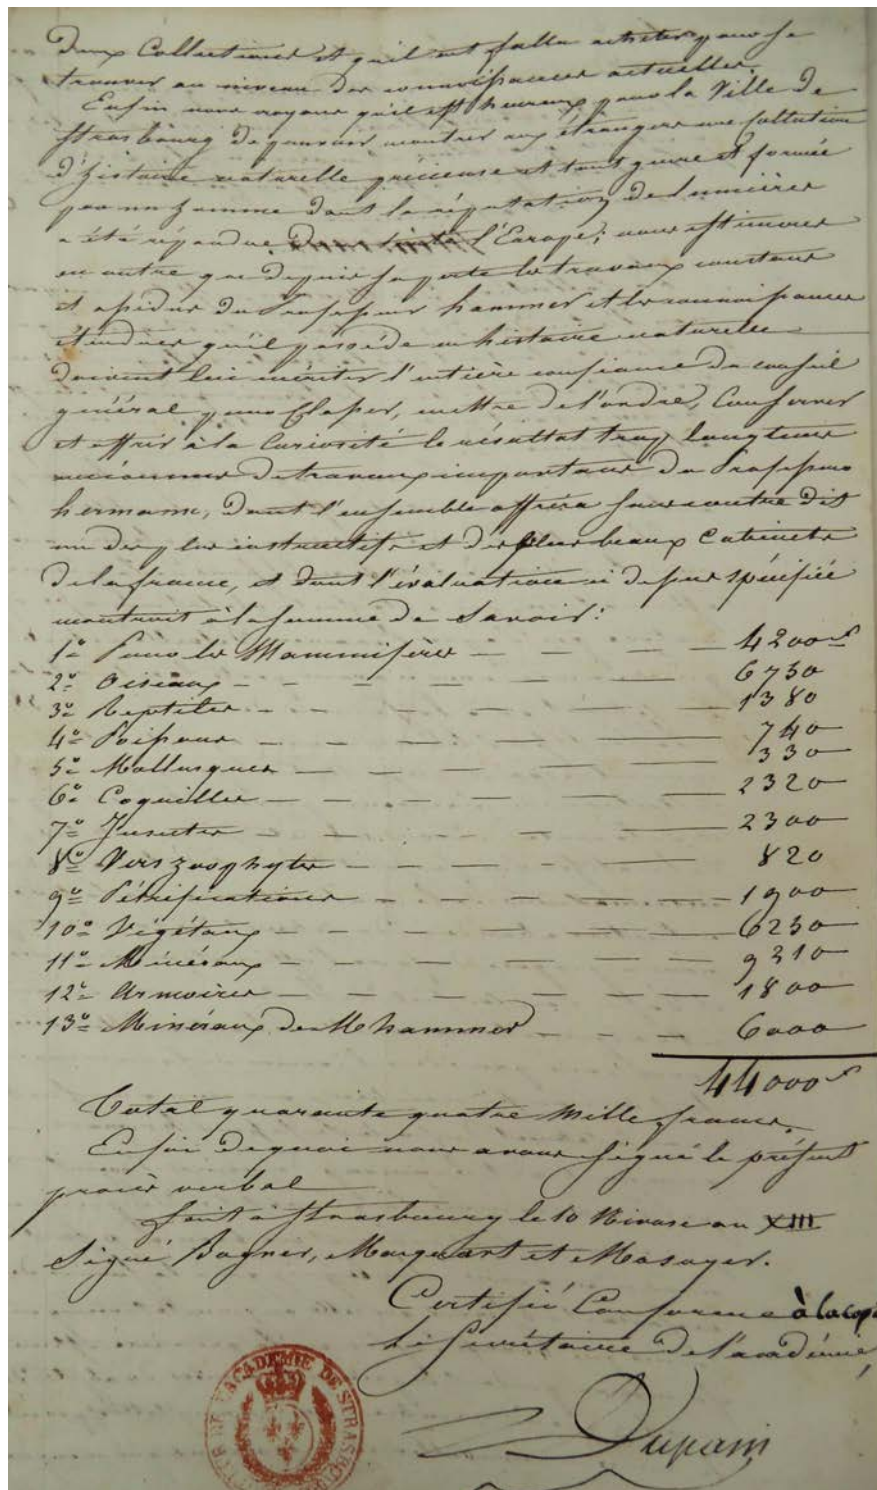 deux Collections et qu'il eut fallu acheter pour se
trouver au niveau des connoissances actuelles.
Enfin nous croyons qu'il est heureux pour la Ville de
Strasbourg de pouvoir montrer aux étrangers une Collection
d'histoire naturelle précieuse et tout genre et formée
par un homme dont la réputation de lumières
a été répandue dans toute l'Europe; nous estimons
en outre que depuis sa perte les travaux constans
et assidus du Professeur hammer et les connoissances
étendues qu'il possède en histoire naturelle
doivent lui mériter l'entière confiance du conseil
général pour Classer, mettre de l'ordre, Conserver
et offrir à la Curiosité le résultat trop longtems
de travaux importans du Professeur
hermann, dont l'ensemble offrira sans contre dit
un des plus instructifs et des plus beaux Cabinets
de la france, et dont l'évaluation ci dessus spécifiée
montroit à la somme de Savoir:
1° Pour les Mammifères — — — 4200 f
2° Oiseaux — — — 6750
3° Reptiles — — — 1380
4° Poissons — — — 740
5° Mollusques — — — 330
6° Coquilles — — — 2320
7° Insectes — — — 2300
8° Vers zoophytes — — — 820
9° Pétrifications — — — 1900
10° Végétaux — — — 6250
11° Minéraux — — — 9210
12° Armoires — — — 1800
13° Minéraux de M hammer — — — 6000
44000 f
Total quarante quatre Mille francs.
En foi de quoi nous avons signé le présent
procès verbal
fait à Strasbourg le 10 Nivose an XIII
Signé Bagner, Marquart et Masuyer.
Certifié Conforme à la copie
Le Secrétaire de l'académie,
Dupain
ACADÉMIE DE STRASBOURG